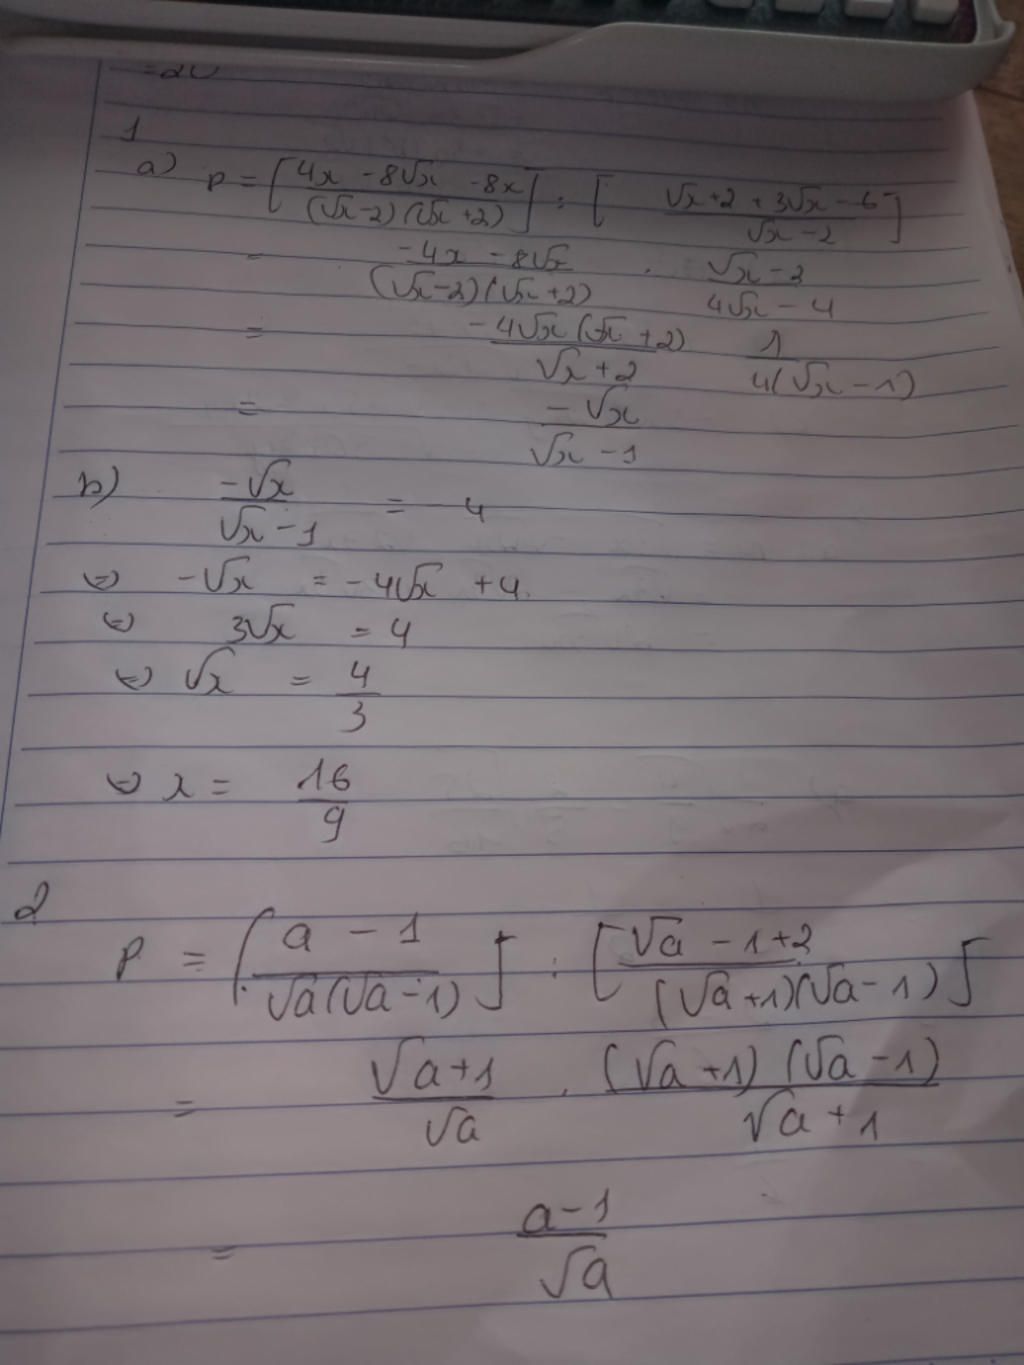 =20
1
a) P = [ (4x - 8√x - 8x) / ((√x - 2)(√x + 2)) ] : [ (√x + 2 + 3√x - 6) / (√x - 2) ]
= (-4x - 8√x) / ((√x - 2)(√x + 2)) . (√x - 2) / (4√x - 4)
= (-4√x(√x + 2)) / (√x + 2) 1 / (4(√x - 1))
= (-√x) / (√x - 1)
b) (-√x) / (√x - 1) = 4
⇔ -√x = -4√x + 4
⇔ 3√x = 4
⇔ √x = 4 / 3
⇔ x = 16 / 9
2
P = [ (a - 1) / (√a(√a - 1)) ] : [ (√a - 1 + 2) / ((√a + 1)(√a - 1)) ]
= (√a + 1) / √a . ((√a + 1)(√a - 1)) / (√a + 1)
= (a - 1) / √a